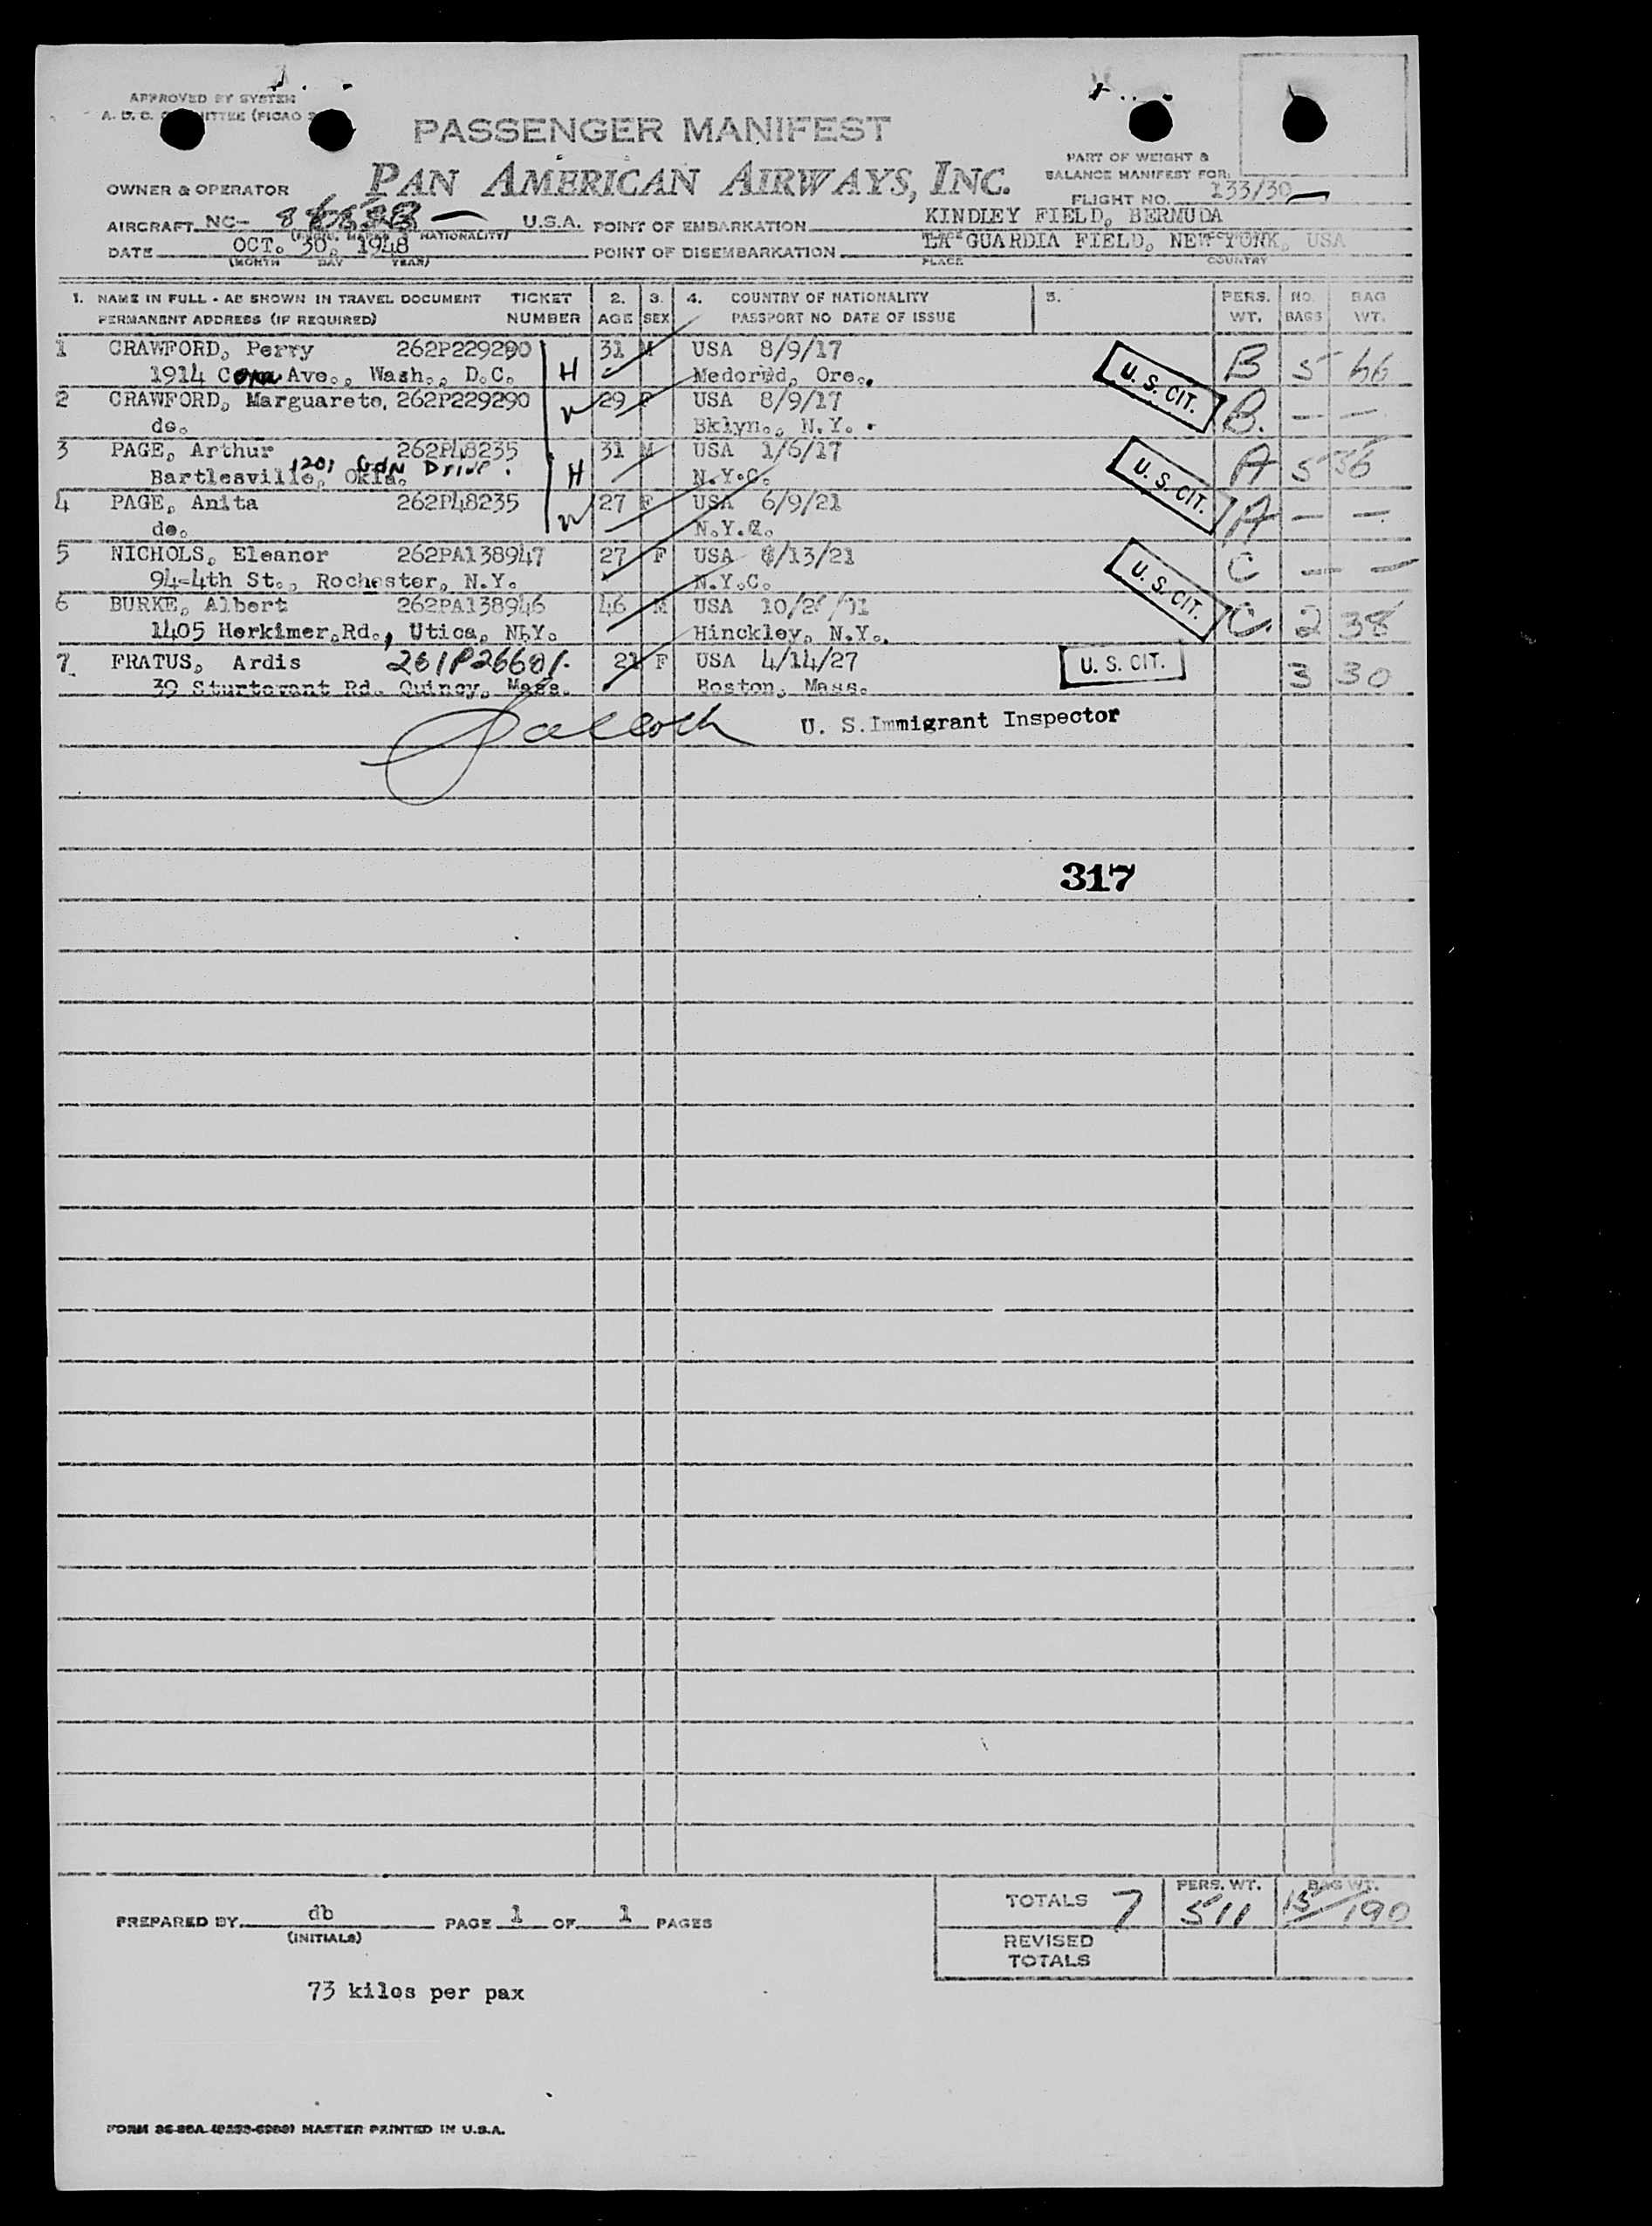 APPROVED BY SYSTEM
PASSENGER MANIFEST
PAN AMERICAN AIRWAYS, INC.
PART OF WEIGHT &
BALANCE MANIFEST FOR:
OWNER & OPERATOR
FLIGHT NO. 133/30
AIRCRAFT NC- U.S.A. POINT OF EMBARKATION KINDLEY FIELD, BERMUDA
DATE OCT. 30, 1948 POINT OF DISEMBARKATION LA GUARDIA FIELD, NEW YORK, USA
(MONTH DAY YEAR) PLACE COUNTRY
1. NAME IN FULL - AS SHOWN IN TRAVEL DOCUMENT TICKET 2. 3. 4. COUNTRY OF NATIONALITY 5. PERS. NO. BAG
PERMANENT ADDRESS (IF REQUIRED) NUMBER AGE SEX PASSPORT NO DATE OF ISSUE WT. BAGS WT.
1 CRAWFORD, Perry 262P229290 31 M USA 8/9/17 B 5 66
1914 Conn Ave., Wash., D.C. H Medorwd, Ore., U. S. CIT.
2 CRAWFORD, Marguarete, 262P229290 29 F USA 8/9/17 B. — —
do. W Bklyn., N.Y.
3 PAGE, Arthur 262P48235 31 M USA 1/6/17 A 5 56
1201 Gdn Drive.
Bartlesville, Okla. H N.Y.C. U. S. CIT.
4 PAGE, Anita 262P48235 27 F USA 6/9/21 A — —
do. W N.Y.C.
5 NICHOLS, Eleanor 262PA138947 27 F USA /13/21 C — —
94-4th St., Rochester, N.Y. N.Y.C. U. S. CIT.
6 BURKE, Albert 262PA138946 46 M USA 10/2 /01 C. 2 38
1405 Herkimer,Rd., Utica, N.Y. Hinckley, N.Y.,
7 FRATUS, Ardis 261P26601 21 F USA 4/14/27 U. S. CIT. 3 30
39 Sturtevant Rd. Quincy, Mass. Boston, Mass.
U. S.Immigrant Inspector
317
PERS. WT. BAG WT.
TOTALS 7 511 15/190
PREPARED BY db PAGE 1 OF 1 PAGES
(INITIALS) REVISED
TOTALS
73 kilos per pax
MASTER PRINTED IN U.S.A.